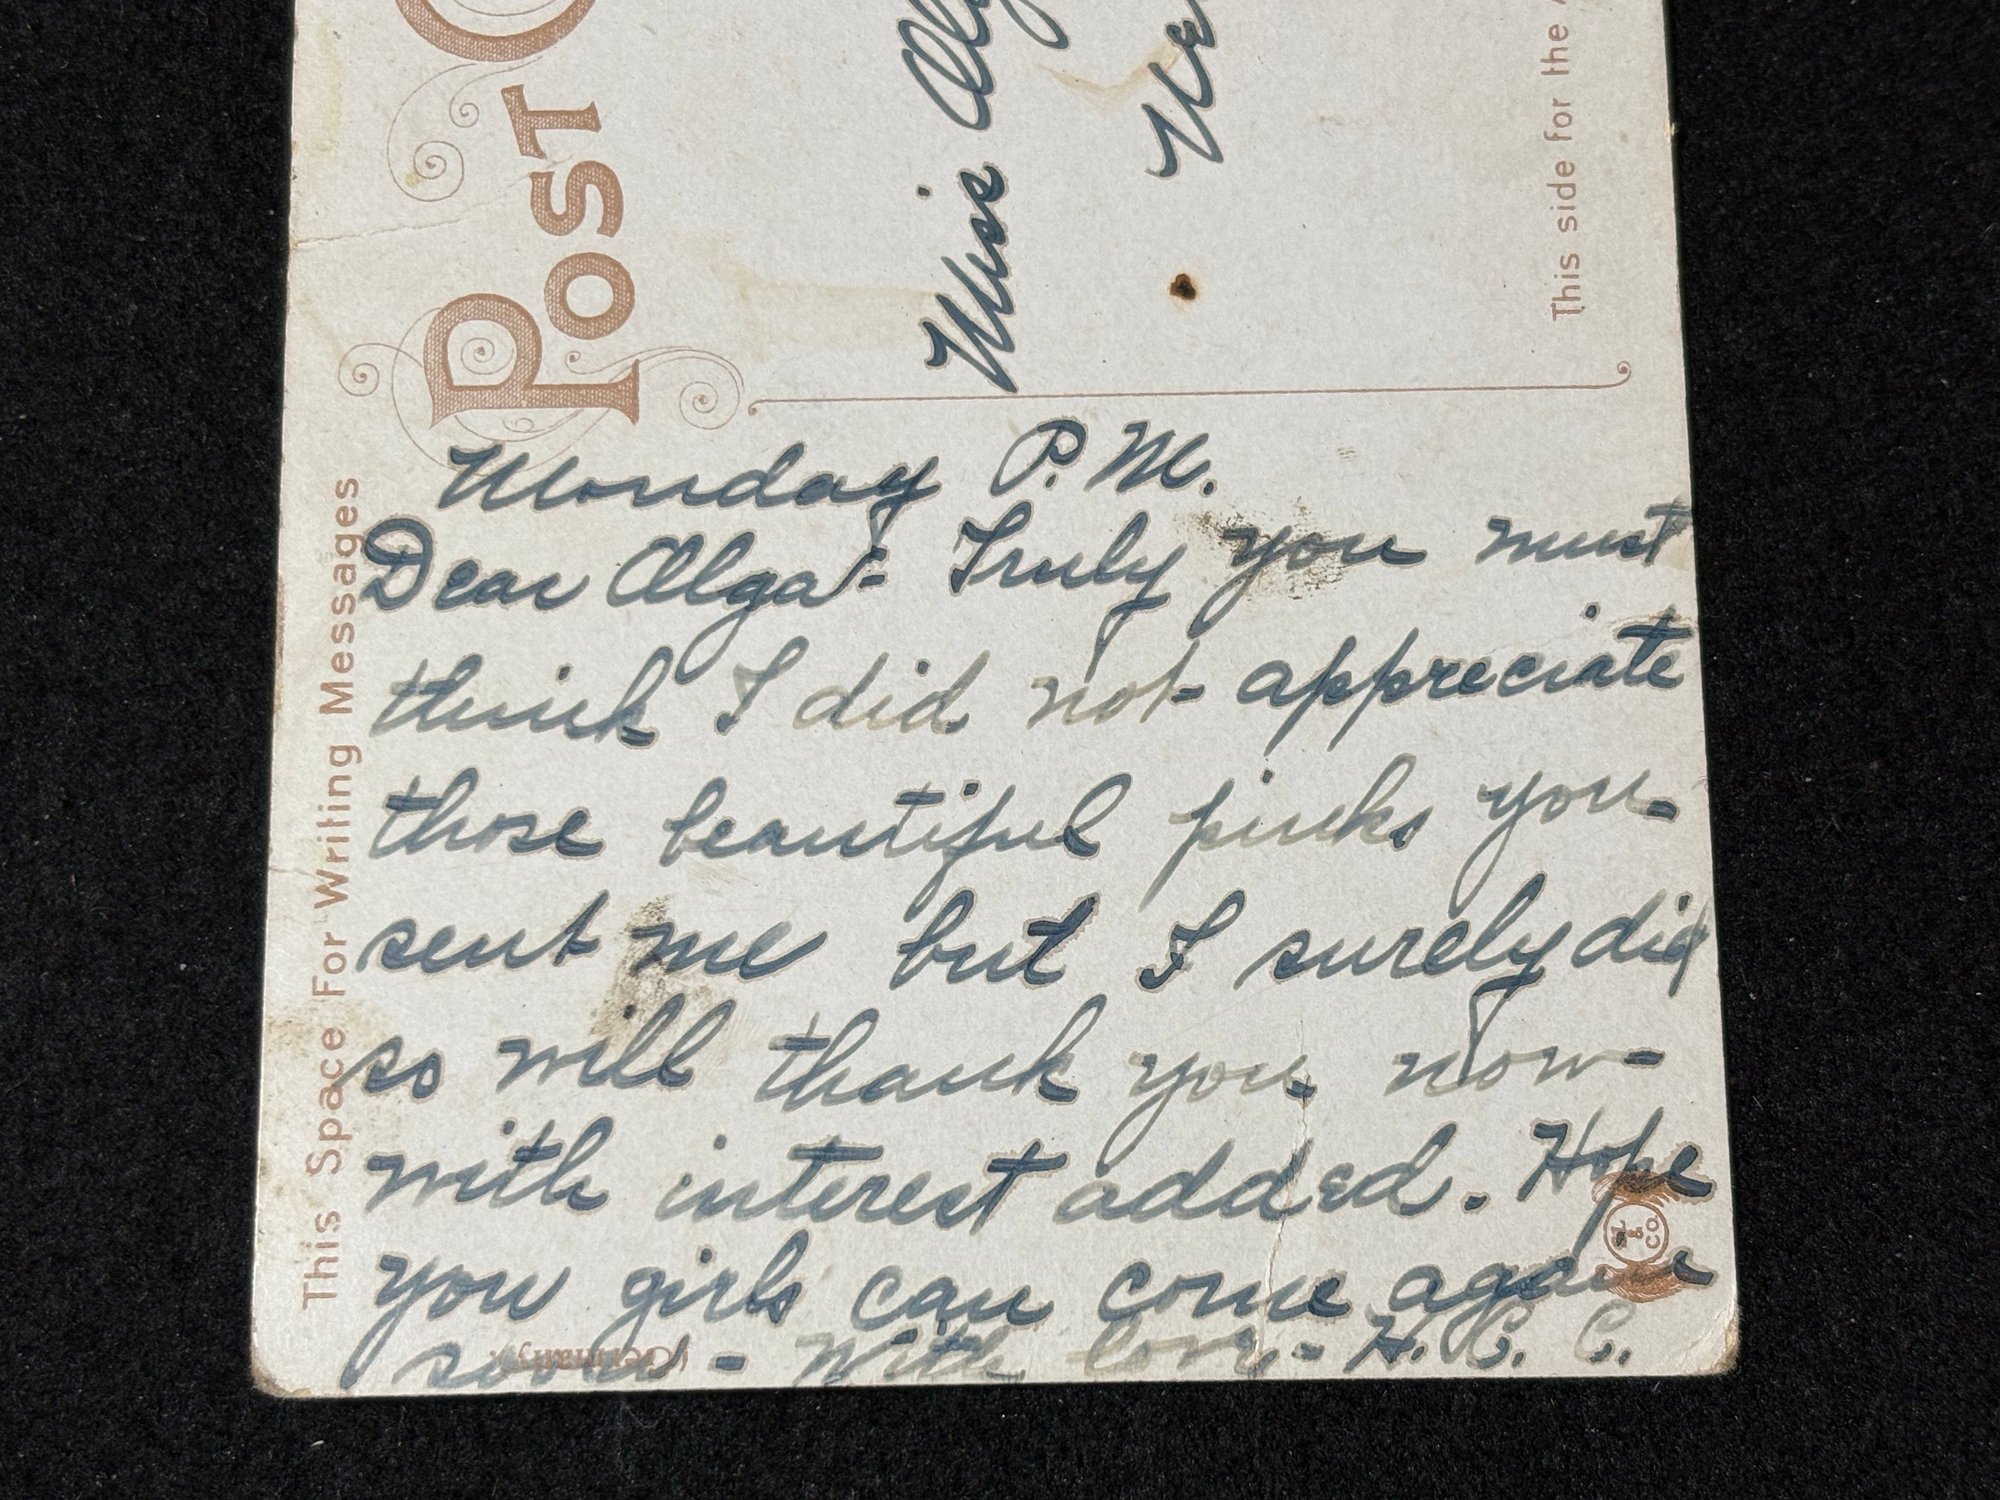 Post
This Space For Writing Messages
This side for the
Miss Olg
Ne
Monday P.M.
Dear Olga:- Truly you must
think I did not appreciate
those beautiful pinks you
sent me but I surely did
so will thank you now-
with interest added. Hope
you girls can come again
soon - With love - H. C. C.
(Germany).